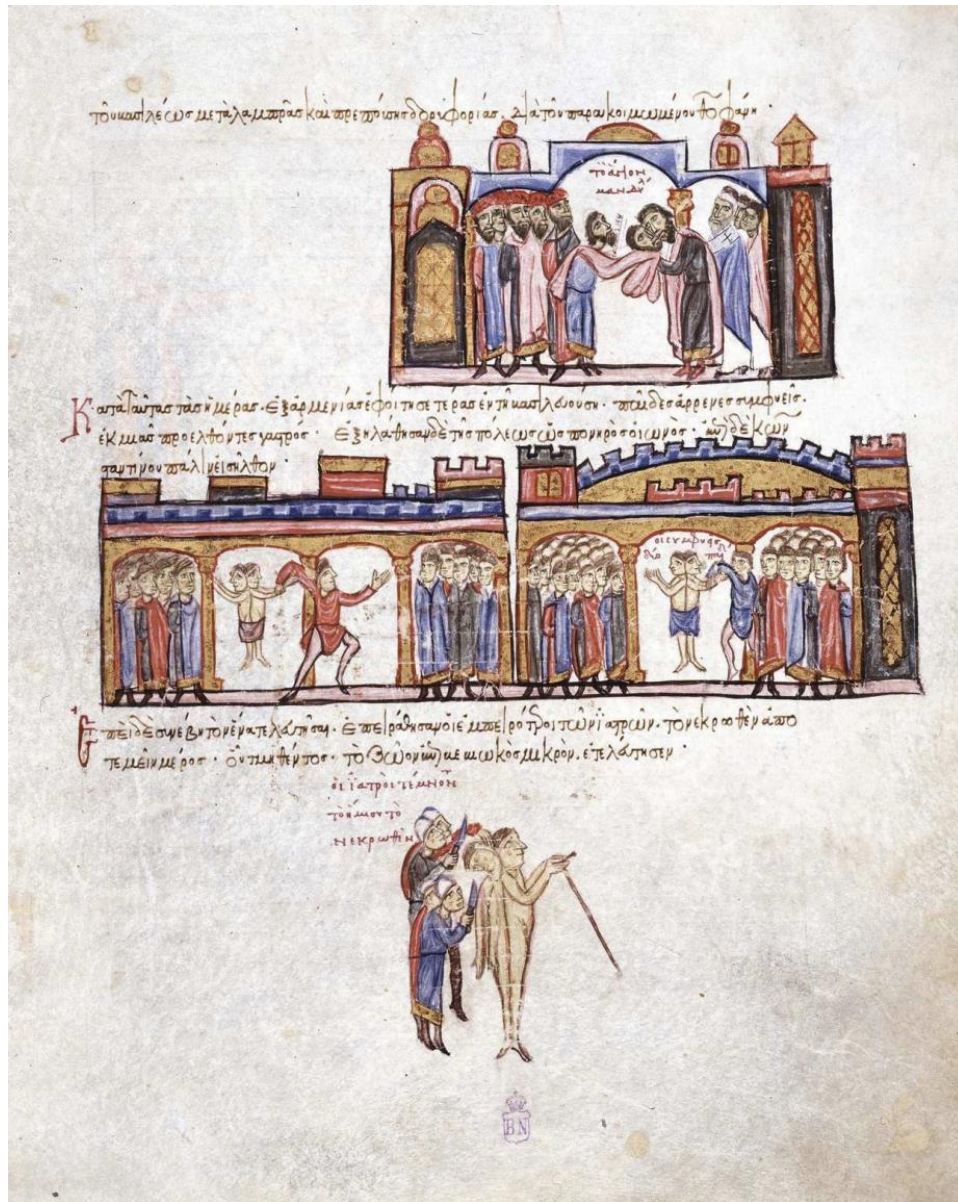 τοῦ βασιλέως μετὰ λαμπρᾶς καὶ πρεπούσης δορυφορίας. διὰ τοῦ παρακοιμωμένου θεοφάνη
τὸ ἅγιον
μανδύλ
Κατὰ ταύτας τὰς ἡμέρας. ἐξ ἀρμενίας ἐφοίτησε τέρας ἐν τῆ βασιλευούση. παῖδες ἄρρενες συμφυεῖς
ἐκ μιᾶς προελθόντες γαστρός. ἐξηλάθησαν δὲ τῆς πόλεως ὡς πονηρὸς οἰωνός. ἐπὶ δὲ κων
σταντίνου πάλιν εἰσῆλθον.
οἱ συμφυεῖς
δύο
Ἐπεὶ δὲ συνέβη τὸν ἕνα τελευτῆσαι. ἐπειράθησαν οἱ ἐμπειρότεροι τῶν ἰατρῶν. τὸ νεκρωθὲν ἀπο
τεμεῖν μέρος. οὗ τμηθέντος. τὸ ζῶον ἐπιβεβιωκὸς μικρόν. ἐτελεύτησεν.
οἱ ἰατροὶ τέμνον
τὸ ἥμισυ τὸ
νεκρωθὲν
BN